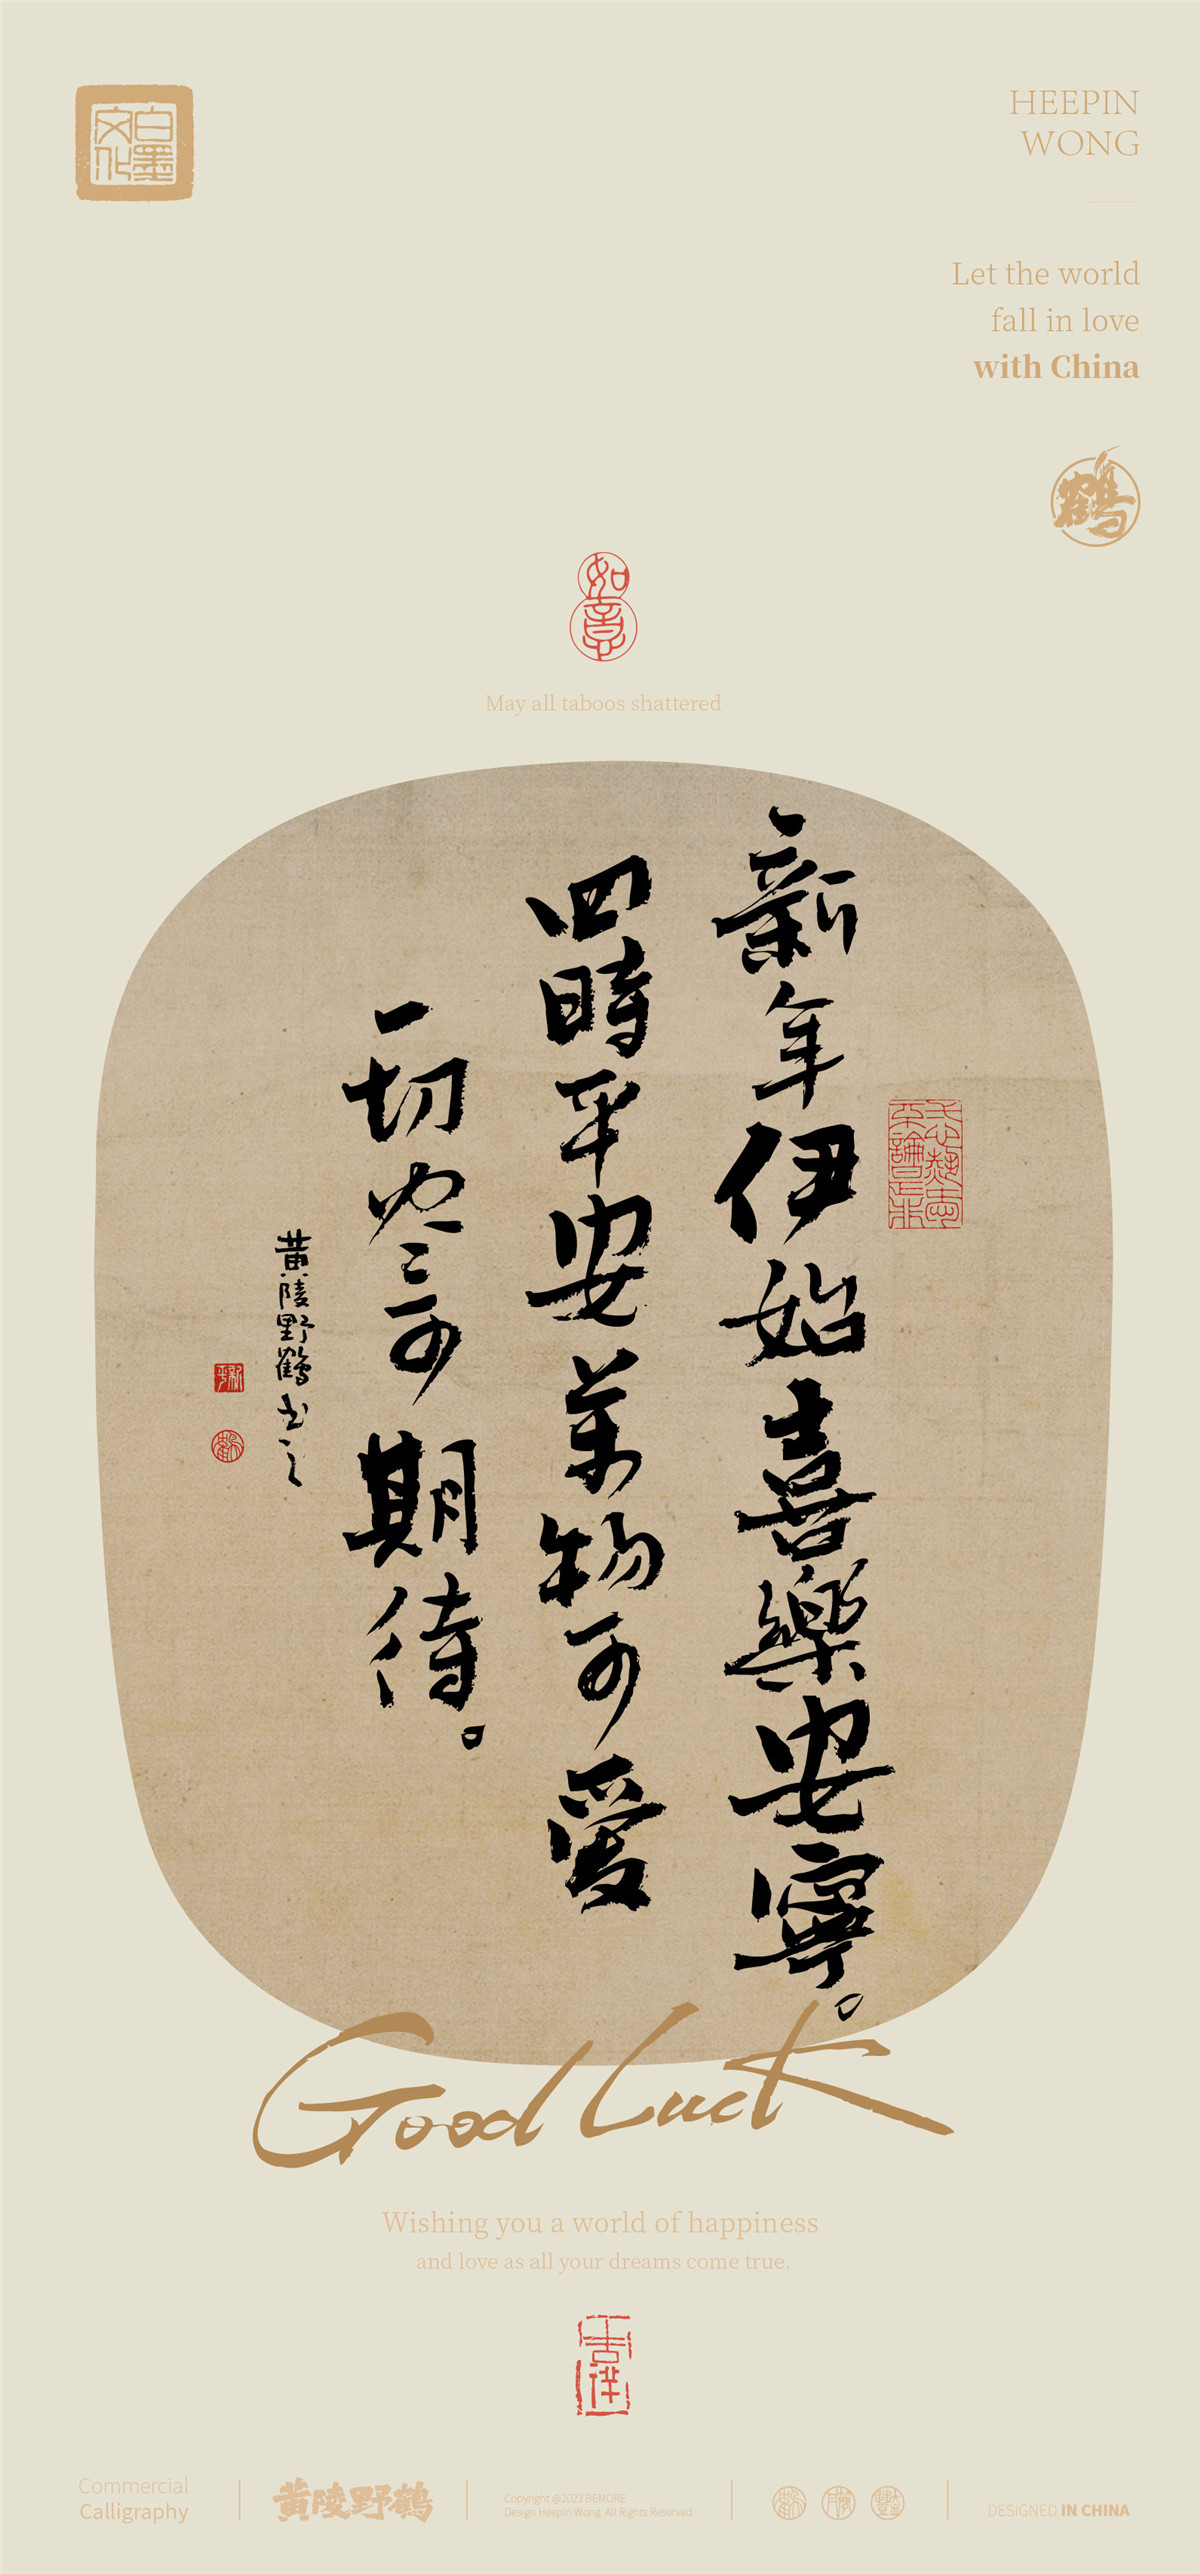 白墨文化
HEEPIN
WONG
Let the world
fall in love
with China
鶴
如意
May all taboos shattered
新年伊始喜樂安寧。
四時平安萬物可愛
一切尽可期待。
黄陵野鶴书之
Good Luck
Wishing you a world of happiness
and love as all your dreams come true.
吉祥
Commercial
Calligraphy
黄陵野鶴
Copyright @2023 BEMORE
Design Heepin Wong. All Rights Reserved
DESIGNED IN CHINA